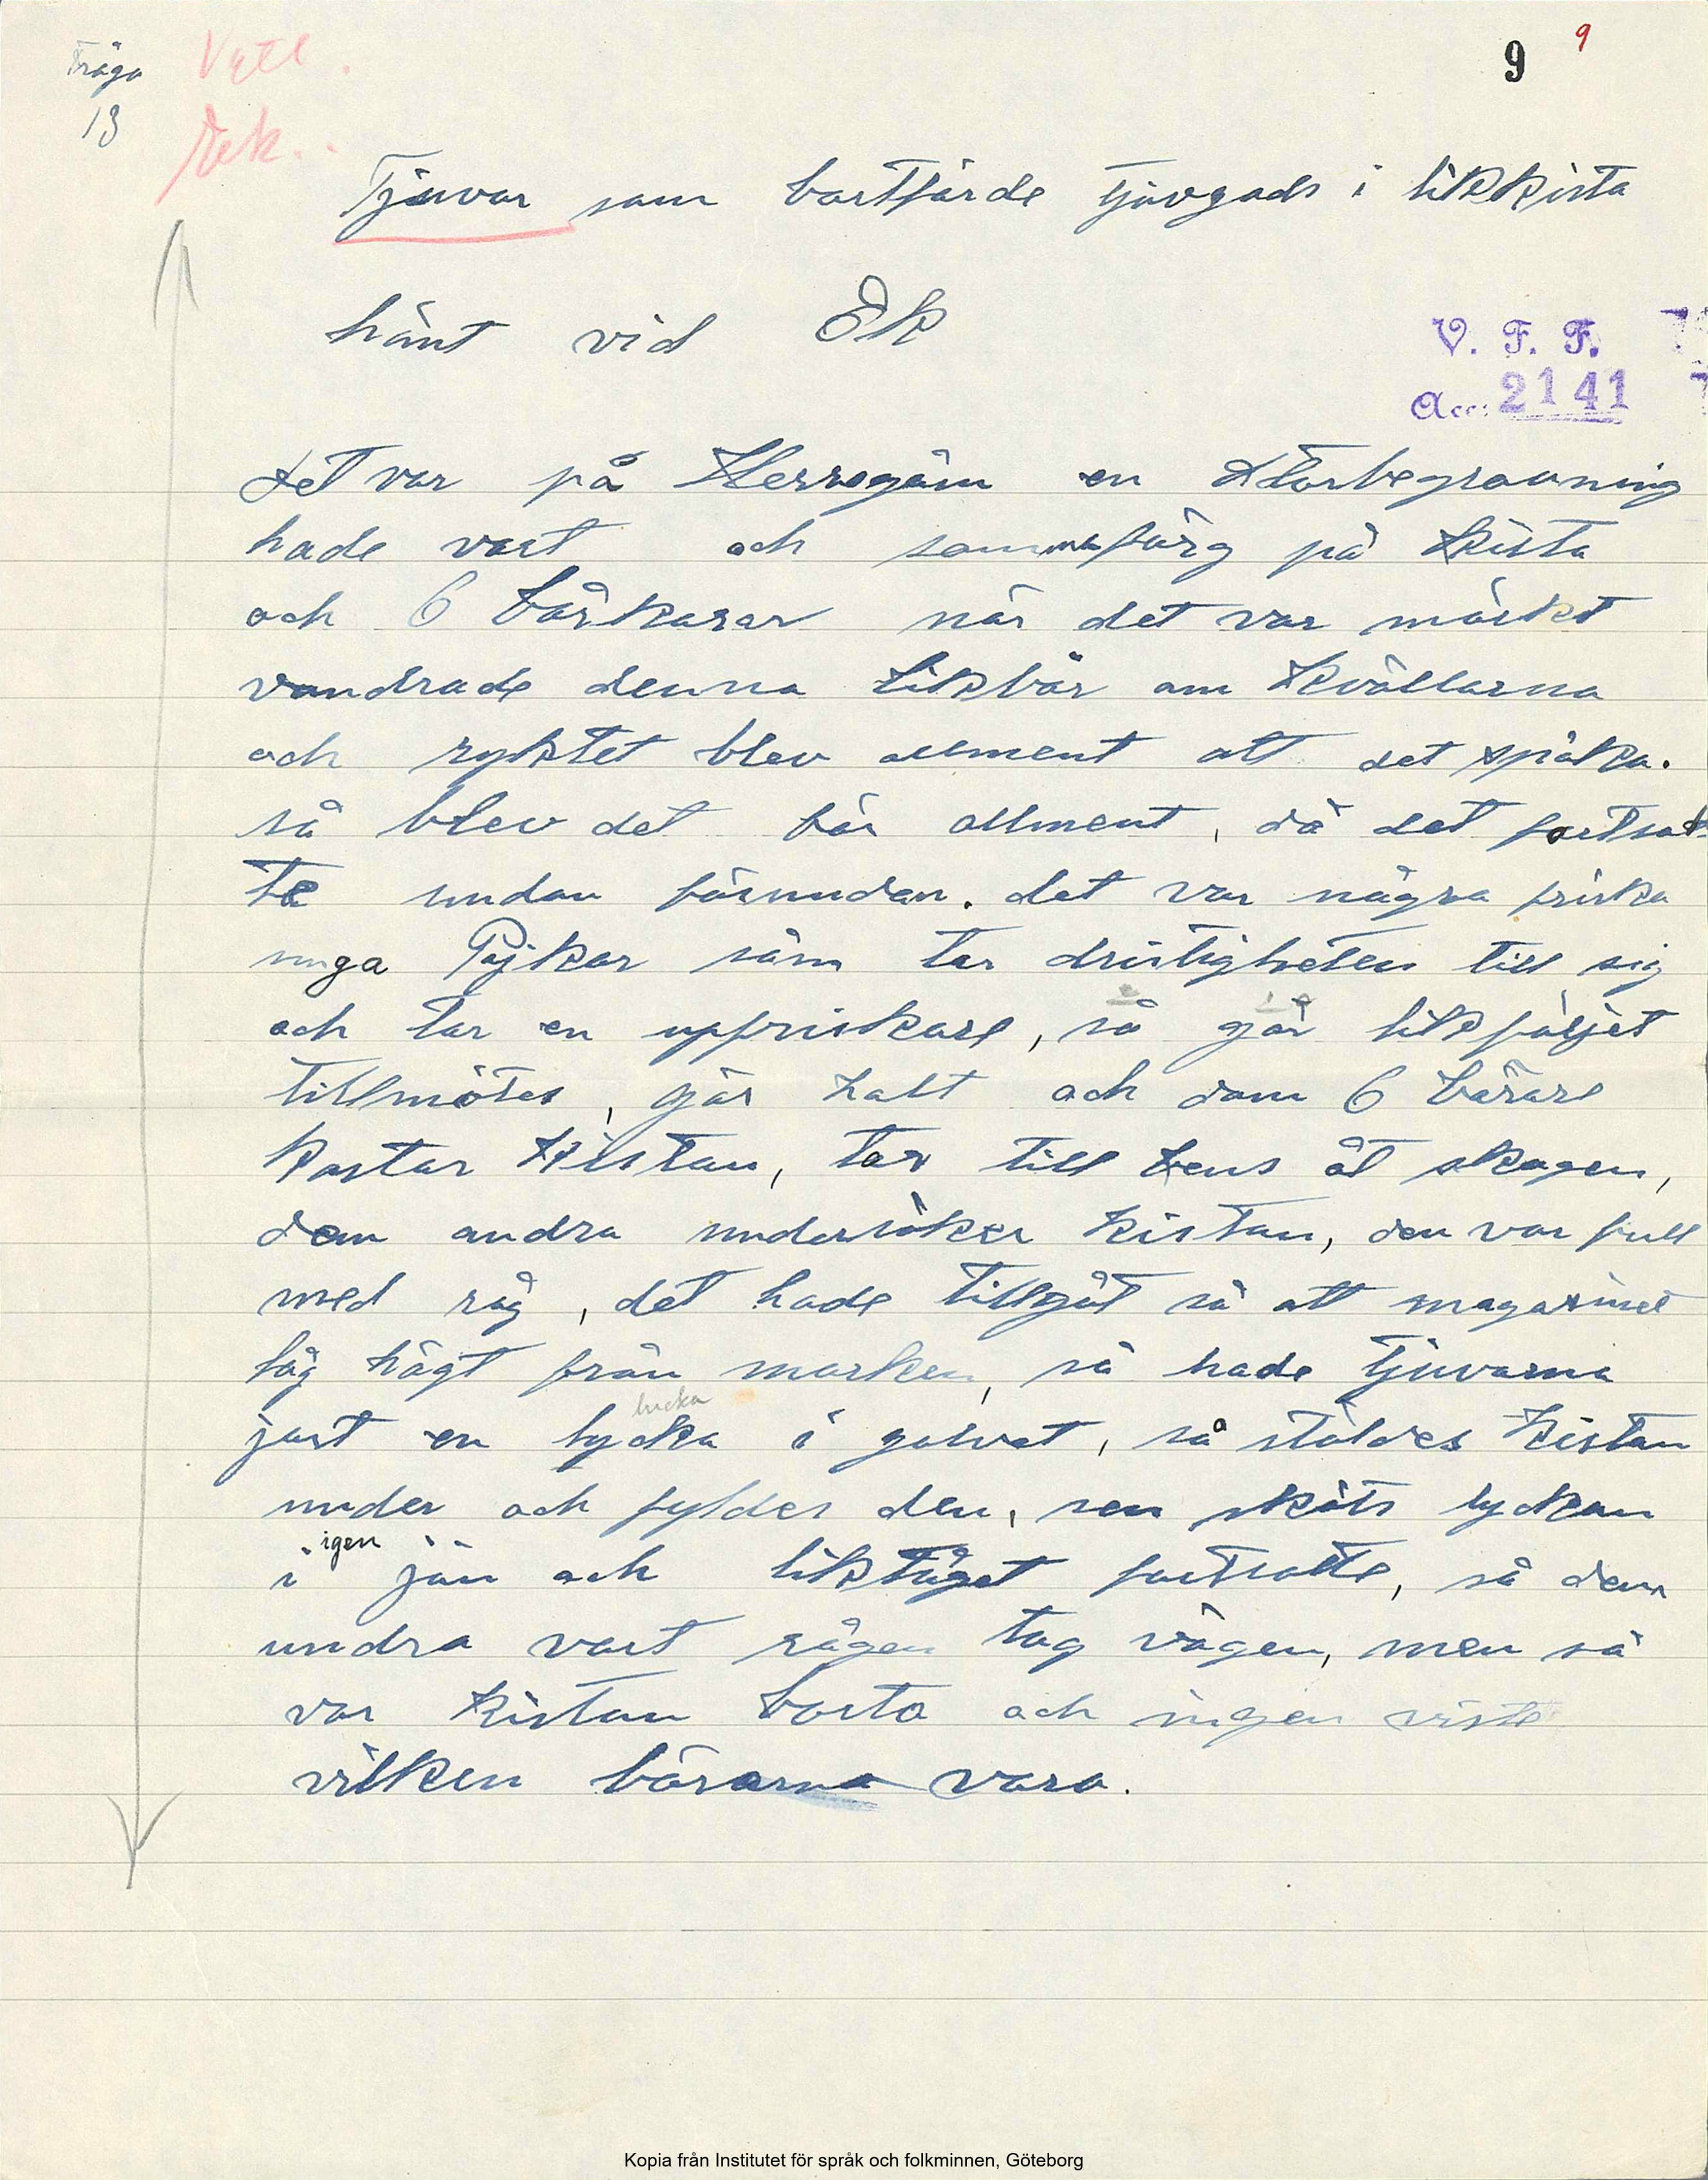 Fråga
13
Vätt.
Rek.
9
9
Tjuvar som bortförde tjuvgods i likkista
hänt vid Ek
V. F. F.
Acc: 2141
det var på Herregårn en storbegravning
hade vart och samma färg på kista
och 6 bårkarar när det var mörkt
vandrade denna likbår om kvällarna
och ryktet blev allment att det spöka.
så blev det för allment, då det fortsat
te undan förundan. det var några friska
unga Pojkar som tar dristigheten till sig
och tar en uppfriskare, så går likföljet
tillmötes, gör halt och dom 6 bärare
kastar kistan, tar till bens åt skogen,
dem andra undersöker kistan, den var full
med råg, det hade tillgåt så att magasinet
låg högt från marken, så hade tjuvarna
lucka
jort en lycka i golvet, så stäldes kistan
under och fyldes den, sen sköts lyckan
igen
i jän och liktåget fortsatte, så dem
undra vart rågen tog vägen, men så
var kistan borta och ingen viste
vilken bärarna vara.
Kopia från Institutet för språk och folkminnen, Göteborg